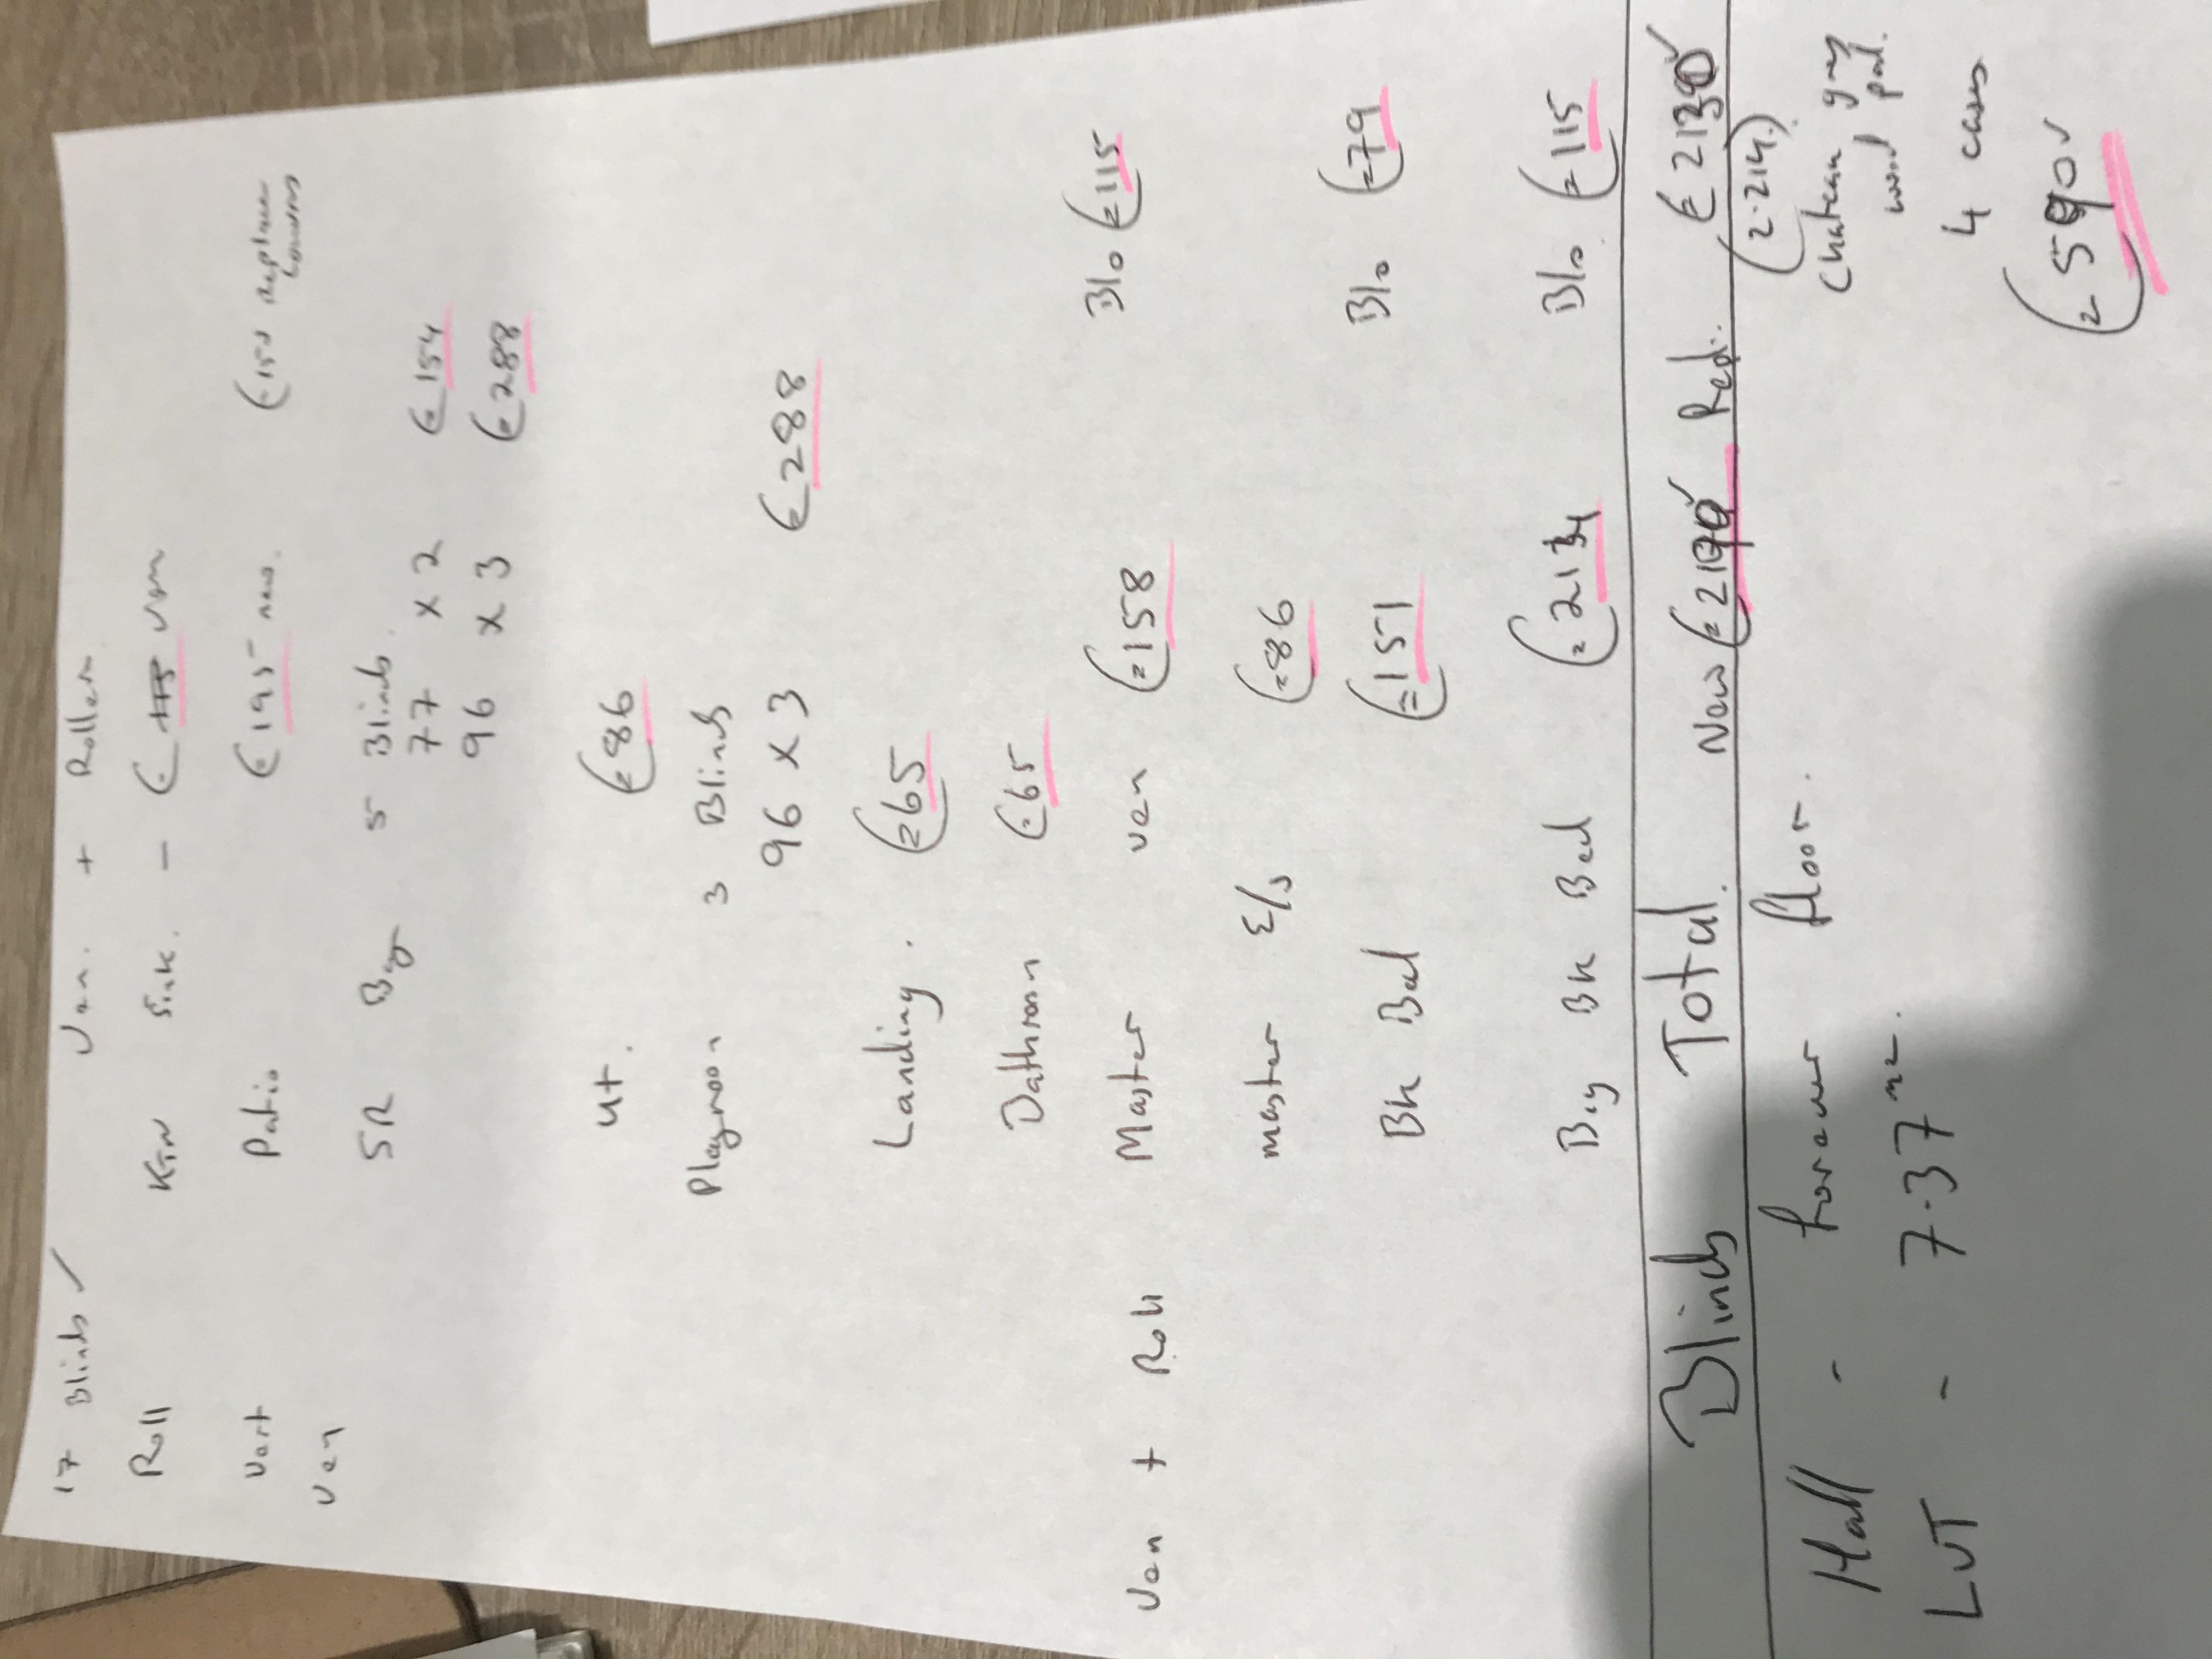 17 Blinds ✓ Ven. + Roller
Roll Kitn Sink. - € Ven
Vert Patio € 195 new. € 150 replace louvres
Ven SR Bay 5 Blinds.
77 x 2 € 154
96 x 3 € 288
Ut. € 86
Playroom 3 Blinds
96 x 3 € 288
Landing. € 65
Bathroom € 65
Ven + Roll Master Ven € 158 Blo € 115
master E/s € 86
Bk Bed € 151 Blo € 79
Big Bk Bed € 214 Blo. € 115
Blinds Total. New € 2190 Rep. € 2130
(2.214.)
Hall - forever floor. Chateau grey wood
LVT - 7.37 m². 4 cases
€ 590 ✓